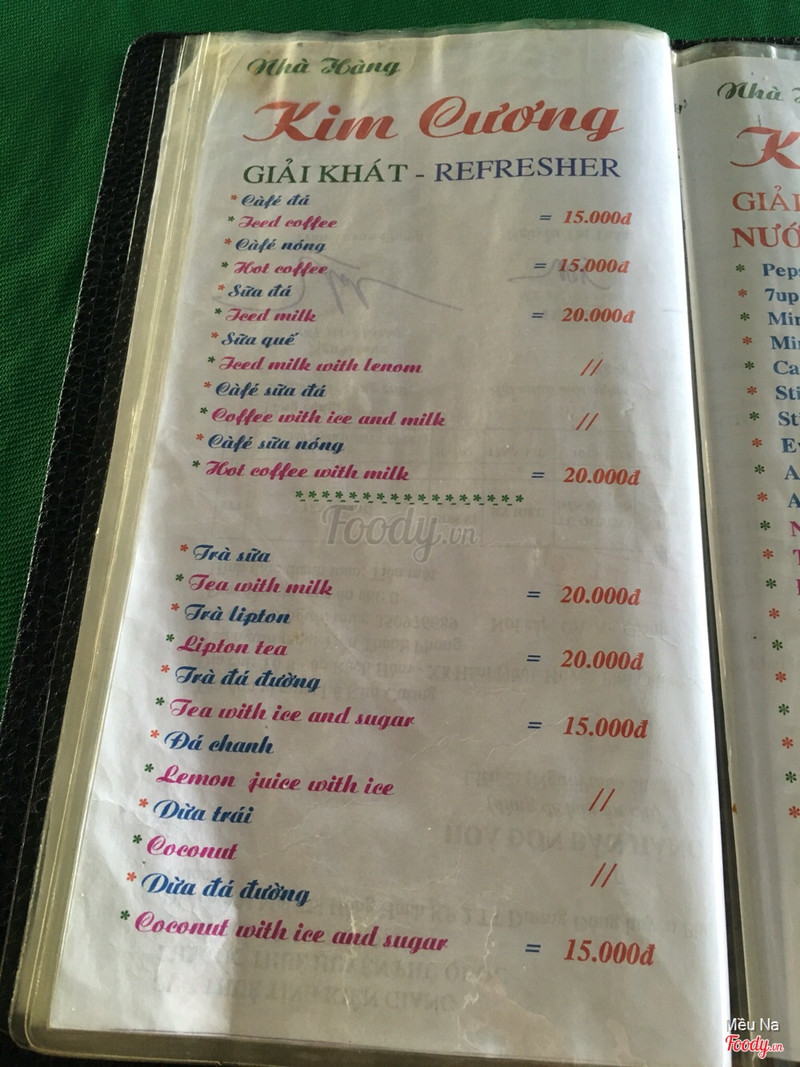 Nhà Hàng
Kim Cương
GIẢI KHÁT - REFRESHER
* Càfé đá
* Iced coffee = 15.000đ
* Càfé nóng
* Hot coffee = 15.000đ
* Sữa đá
* Iced milk = 20.000đ
* Sữa quế
* Iced milk with lenom //
* Càfé sữa đá
* Coffee with ice and milk //
* Càfé sữa nóng
* Hot coffee with milk = 20.000đ
*****************
Foody.vn
* Trà sữa
* Tea with milk = 20.000đ
* Trà lipton
* Lipton tea = 20.000đ
* Trà đá đường
* Tea with ice and sugar = 15.000đ
* Đá chanh
* Lemon juice with ice //
* Dừa trái
* Coconut //
* Dừa đá đường
* Coconut with ice and sugar = 15.000đ
Nhà
GIẢI
* 7up
Mều Na
Foody.vn